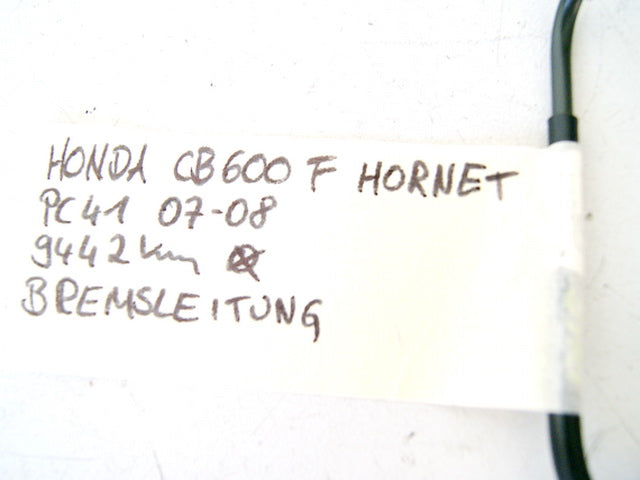 HONDA CB600 F HORNET
PC41 07-08
9442km
BREMSLEITUNG